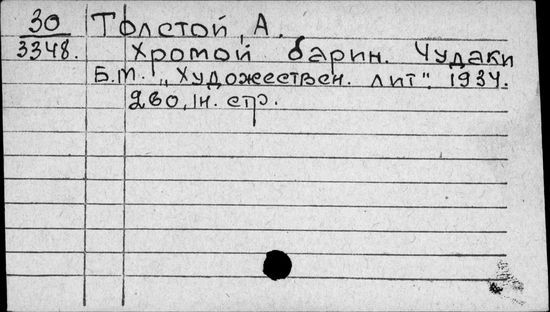 30 Толстой, А.
3348. Хромой барин. Чудаки
Б.м. „Художествен. лит". 1934.
280, Iн. стр.